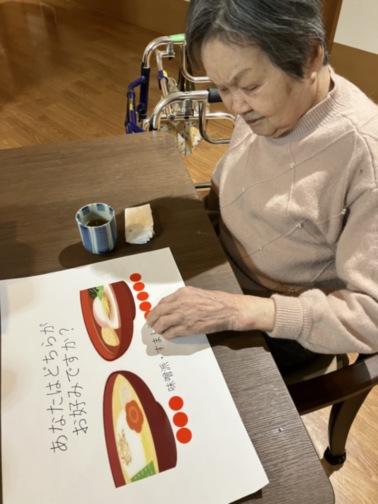 あなたはどちらが
お好みですか？
味噌派・すま